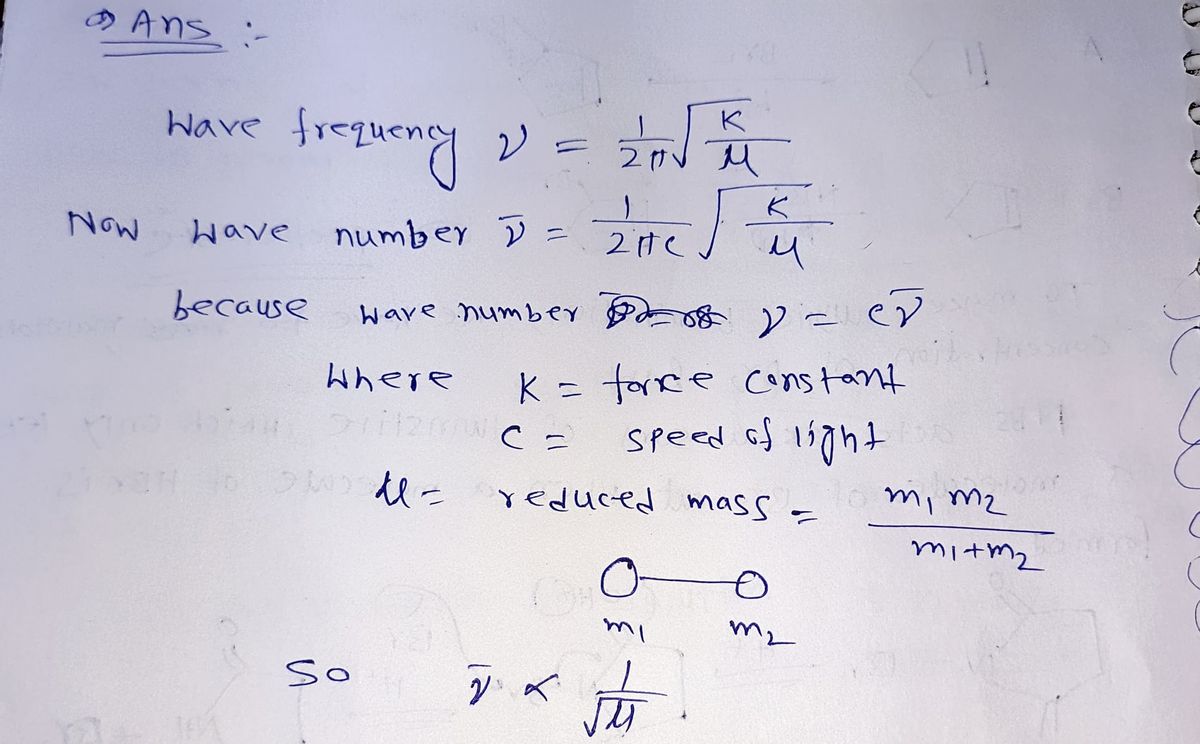 ⇒ Ans :-
Wave frequency ν = 1/2π √K/μ
Now wave number ν̄ = 1/2πc √K/μ
because wave number ν = cν̄
where K = force constant
C = speed of light
μ = reduced mass = m₁m₂/m₁+m₂
m₁ m₂
So ν̄ ∝ 1/√μ